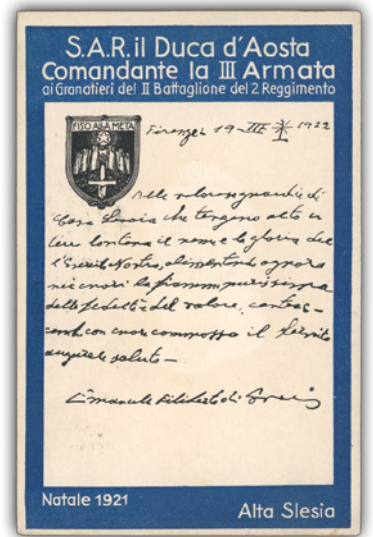 S.A.R. il Duca d'Aosta
Comandante la III Armata
ai Granatieri del II Battaglione del 2 Reggimento
FISO ALLA META
Firenze 19 III 1922
Alle valorose guardie di
Casa Savoia che tengono alto in
terra lontana il nome e la gloria del
l'Esercito Nostro, alimentando ognora
nei cuori la fiamma purissima
della fedeltà e del valore,
con cuore commosso il fervido
augurale saluto –
Emanuele Filiberto di Savoia
Natale 1921
Alta Slesia